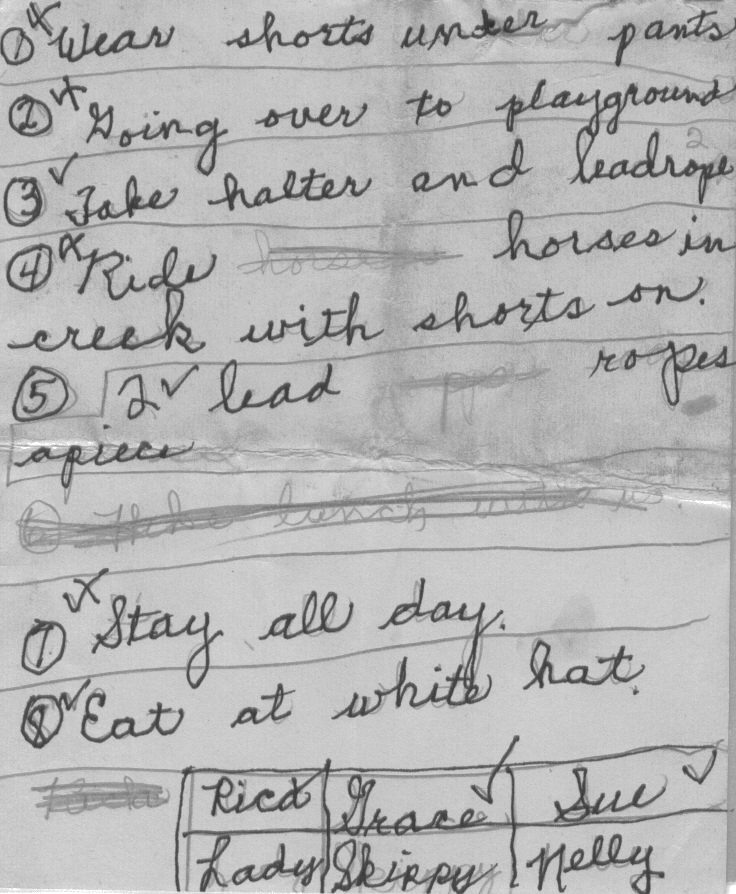 ① x Wear shorts under pants
② x Going over to playground
2
③ ✓ Take halter and leadrope
④ x Ride horses horses in
creek with shorts on.
⑤ 2 ✓ lead ropes
apiece
⑥ Take lunch with us.
⑦ x Stay all day.
⑧ ✓ Eat at white hat.
Rica Grace ✓ Sue ✓
Lady Skippy Nelly